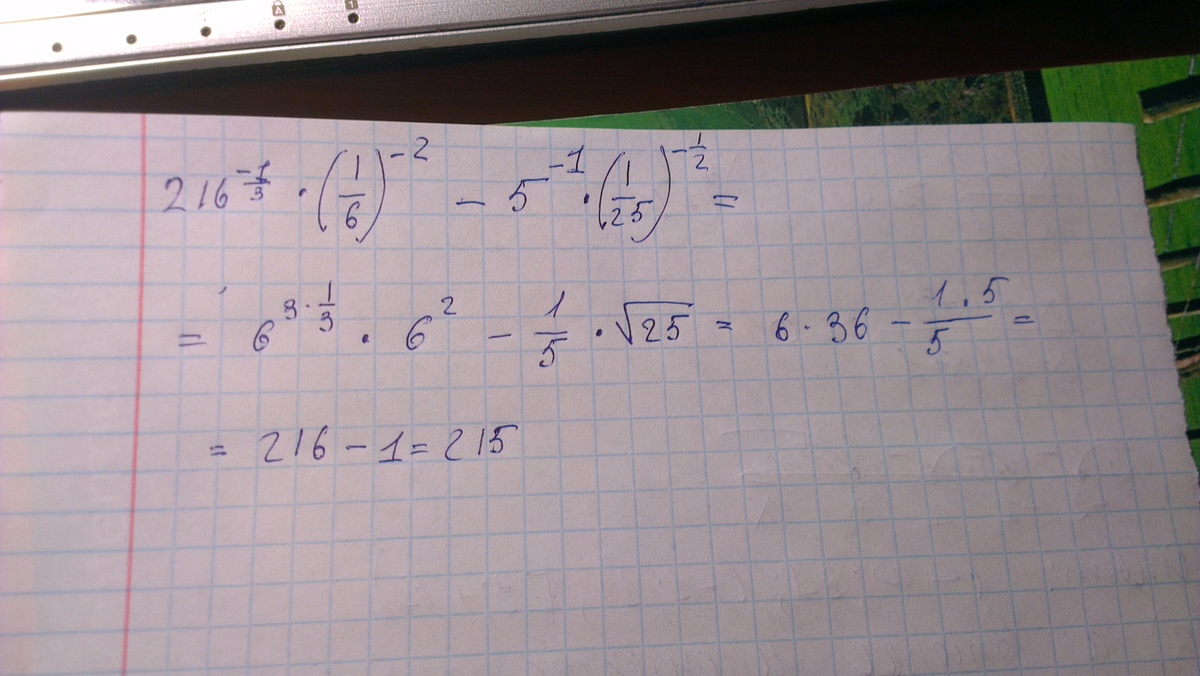 216^{-1/3} · (1/6)^{-2} − 5^{-1} · (1/25)^{-1/2} =
= 6^{3 · 1/3} · 6^2 − 1/5 · √25 = 6 · 36 − (1 · 5)/5 =
= 216 − 1 = 215